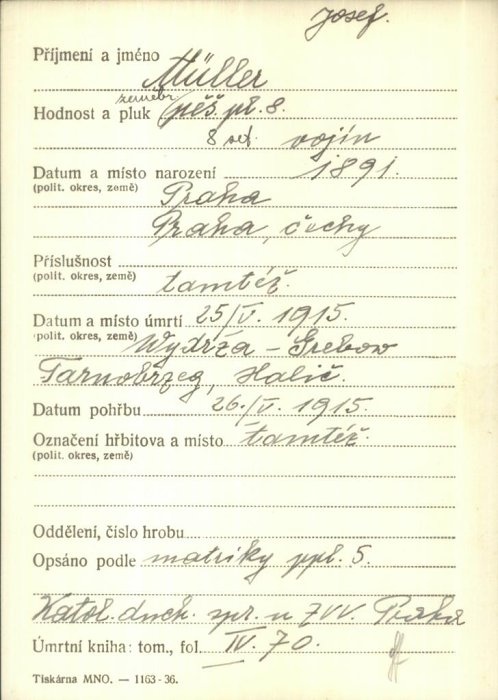 Josef.
Příjmení a jméno Müller
zeměbr.
Hodnost a pluk pěš. pl. 8.
8 set. vojín
Datum a místo narození 1891.
(polit. okres, země) Praha
Praha, čechy
Příslušnost
(polit. okres, země) tamtéž.
Datum a místo úmrtí 25/V. 1915.
(polit. okres, země) Wydrža - Grebow
Tarnobrzeg, Halič.
Datum pohřbu 26./V. 1915.
Označení hřbitova a místo tamtéž.
(polit. okres, země)
Oddělení, číslo hrobu
Opsáno podle matriky ppl. 5.
Katol. duch. spr. u ZVV. Praha
Úmrtní kniha: tom., fol. IV. 70.
Tiskárna MNO. — 1163-36.